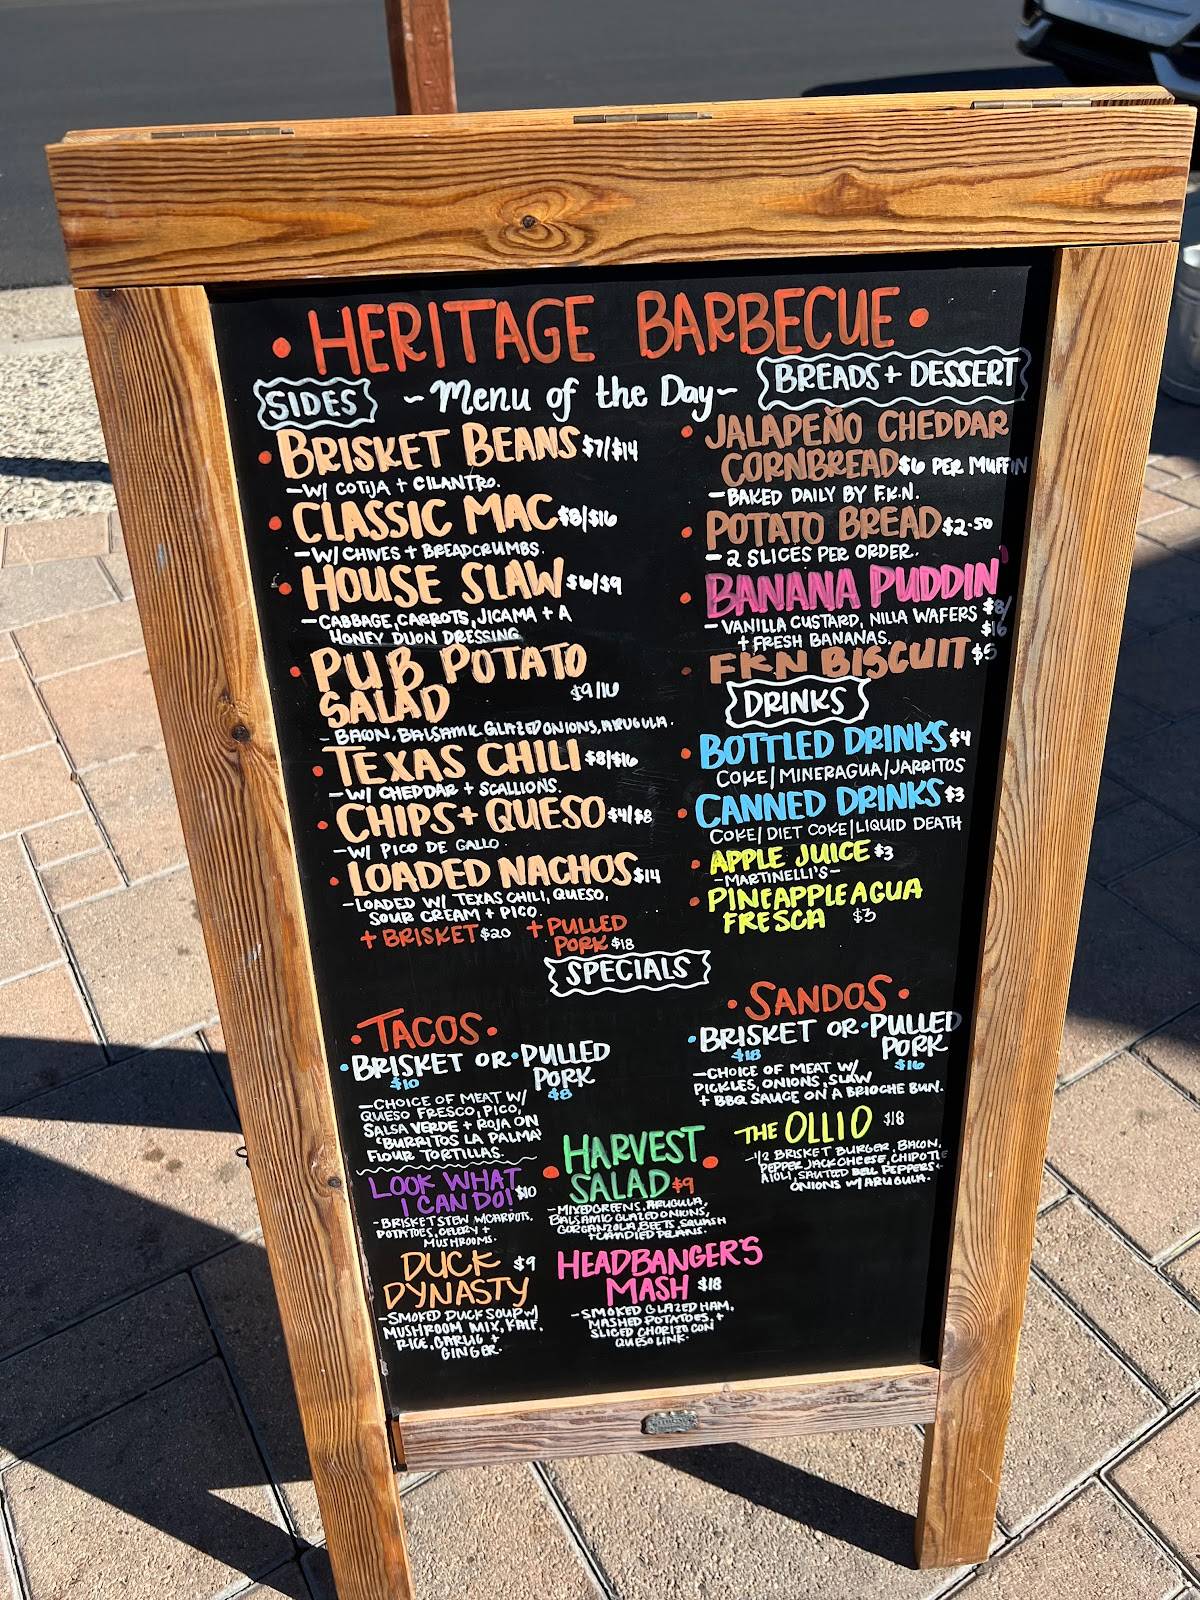 • HERITAGE BARBECUE •
~ Menu of the Day ~
SIDES
• BRISKET BEANS $7/$14
- W/ COTIJA + CILANTRO.
• CLASSIC MAC $8/$16
- W/ CHIVES + BREADCRUMBS.
• HOUSE SLAW $6/$9
- CABBAGE, CARROTS, JICAMA + A
HONEY DIJON DRESSING
• PUB POTATO
SALAD
- BACON, BALSAMIC GLAZED ONIONS, ARUGULA.
• TEXAS CHILI $8/$16
- W/ CHEDDAR + SCALLIONS.
• CHIPS + QUESO $4/$8
- W/ PICO DE GALLO.
• LOADED NACHOS $14
- LOADED W/ TEXAS CHILI, QUESO,
SOUR CREAM + PICO.
+ BRISKET $20 + PULLED
PORK $18
BREADS + DESSERT
• JALAPEÑO CHEDDAR
CORNBREAD $6 PER MUFFIN
- BAKED DAILY BY F.K.N.
• POTATO BREAD $2.50
- 2 SLICES PER ORDER.
• BANANA PUDDIN'
- VANILLA CUSTARD, NILLA WAFERS $8/
+ FRESH BANANAS. $16
• FKN BISCUIT $5
DRINKS
• BOTTLED DRINKS $4
COKE/MINERAGUA/JARRITOS
• CANNED DRINKS $3
COKE/DIET COKE/LIQUID DEATH
• APPLE JUICE $3
- MARTINELLI'S -
• PINEAPPLE AGUA
FRESCA $3
SPECIALS
• TACOS •
• BRISKET OR • PULLED
PORK
$10 $8
- CHOICE OF MEAT W/
QUESO FRESCO, PICO,
SALSA VERDE + ROJA ON
"BURRITOS LA PALMA"
FLOUR TORTILLAS.
LOOK WHAT
I CAN DO! $10
- BRISKET STEW W/CARROTS,
POTATOES, CELERY +
MUSHROOMS.
DUCK $9
DYNASTY
- SMOKED DUCK SOUP W/
MUSHROOM MIX, KALE,
RICE, GARLIC +
GINGER.
• HARVEST
SALAD • $9
- MIXED GREENS, ARUGULA,
BALSAMIC GLAZED ONIONS,
GORGANZOLA, BEETS, SQUASH
+ CANDIED PECANS.
HEADBANGER'S
MASH $18
- SMOKED GLAZED HAM,
MASHED POTATOES, +
SLICED CHORIZO CON
QUESO LINK.
• SANDOS •
• BRISKET OR • PULLED
PORK
$18 $16
- CHOICE OF MEAT W/
PICKLES, ONIONS, SLAW
+ BBQ SAUCE ON A BRIOCHE BUN.
THE OLLIO $18
- 1/2 BRISKET BURGER, BACON,
PEPPER JACK CHEESE, CHIPOTLE
AIOLI, SAUTEED BELL PEPPERS +
ONIONS W/ ARUGULA.